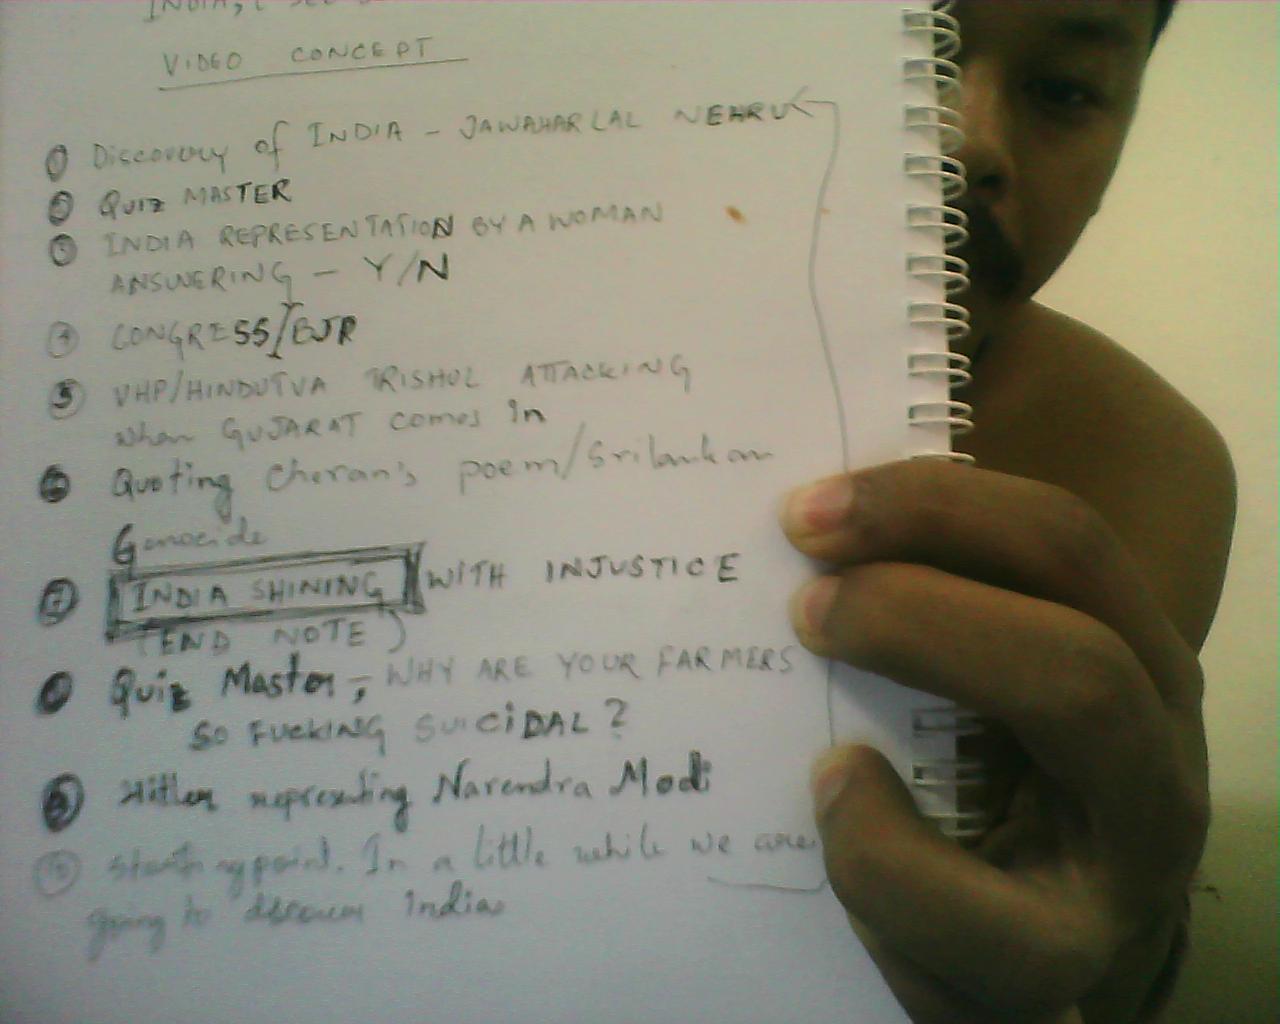 INDIA,
VIDEO CONCEPT
① Discovery of INDIA - JAWAHARLAL NEHRU
② QUIZ MASTER
③ INDIA REPRESENTATION BY A WOMAN
ANSWERING - Y/N
④ CONGRESS/BJP
⑤ VHP/HINDUTVA TRISHUL ATTACKING
when GUJARAT comes in
⑥ Quoting Cheran's poem/Srilankan
Genocide
⑦ INDIA SHINING WITH INJUSTICE
(END NOTE)
Quiz Master, - WHY ARE YOUR FARMERS
SO FUCKING SUICIDAL?
Hitler representing Narendra Modi
Starting point. In a little while we are
going to discover India